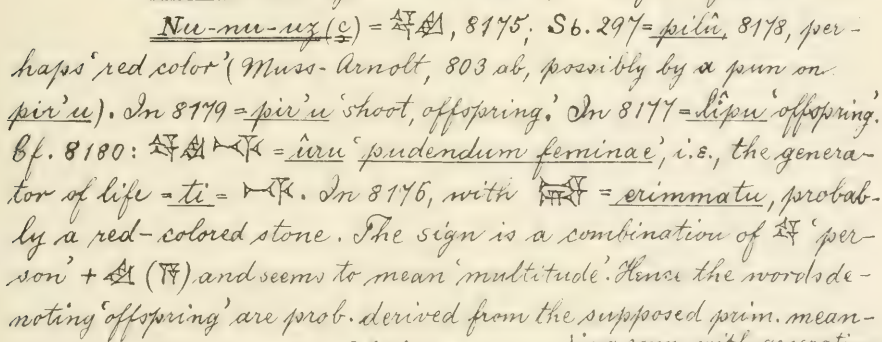 Nu-nu-uz (c) = 𒉭, 8175; Sb. 297 = pilû, 8178, per-
haps 'red color' (Muss-Arnolt, 803 ab, possibly by a pun on
pir'u). In 8179 = pir'u 'shoot, offspring.' In 8177 = lîpu 'offspring'.
Cf. 8180: = ûru 'pudendum feminae', i.e., the genera-
tor of life = ti = . In 8176, with = erimmatu, probab-
ly a red-colored stone. The sign is a combination of 'per-
son' + and seems to mean 'multitude'. Hence the words de-
noting 'offspring' are prob. derived from the supposed prim. mean-